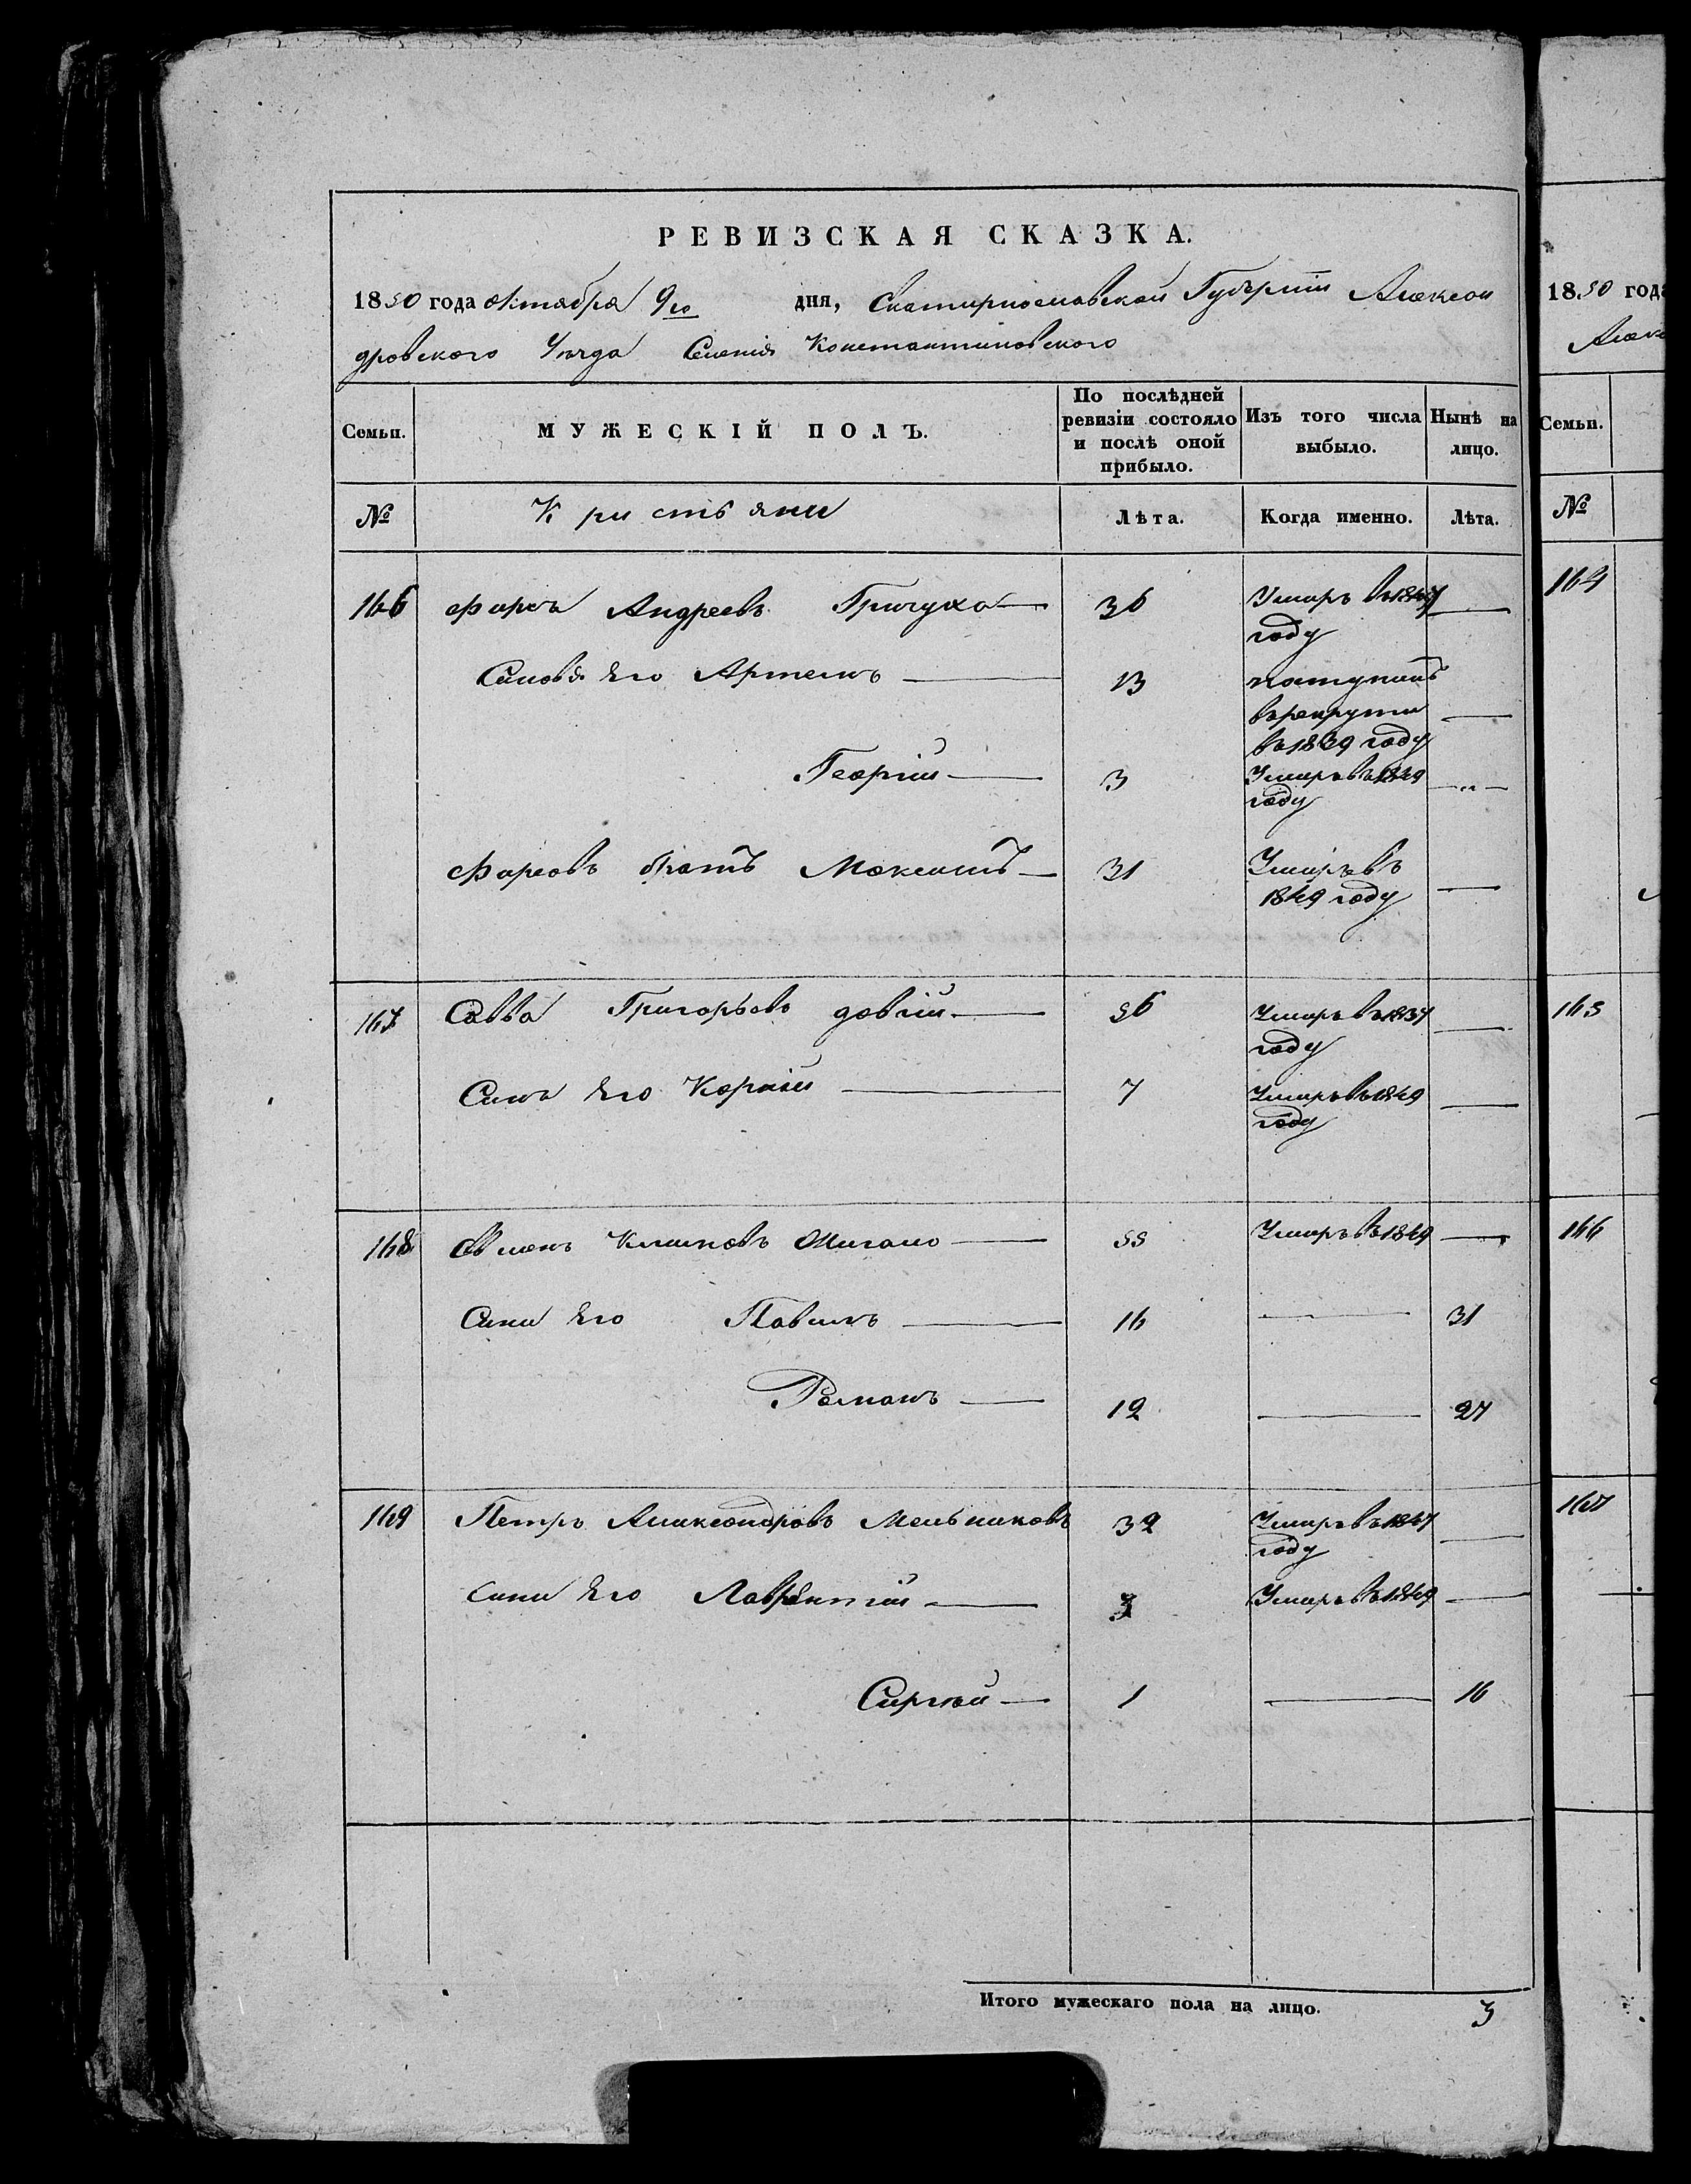 РЕВИЗСКАЯ СКАЗКА.
1850 года октября 9го дня, Екатиринославской Губернии Алексан
дровского Уезда Селения Константиновского
Семьи.
МУЖЕСКІЙ ПОЛЪ.
По послѣдней
ревизіи состояло
и послѣ оной
прибыло.
Изъ того числа
выбыло.
Нынѣ на
лицо.
№
Кристьяни
Лѣта.
Когда именно.
Лѣта.
166 Андреевъ 36 Умеръ в 1847
году
Синовя Его Артемъ 13 поступилъ
в рекрути
въ 1839 году
Георгий 3 Умеръ в 1849
году
братъ Максимъ 31 Умеръ в
1849 году
167 Савва Григорьевъ довгий 56 Умеръ в 1837
году
Синъ Его Корній 7 Умеръ в 1849
году
168 Климовъ 55 Умеръ в 1849
Сини Его Павилъ 16 31
Романъ 12 27
169 Петръ Алаксандровъ Мельниковъ 32 Умеръ в 1847
году
Сини Его Лаврентий 3 Умеръ в 1849
Сиргѣй 1 16
Итого мужескаго пола на лицо. 3
1850 года
Алекс
Семьи.
№
164
165
166
167